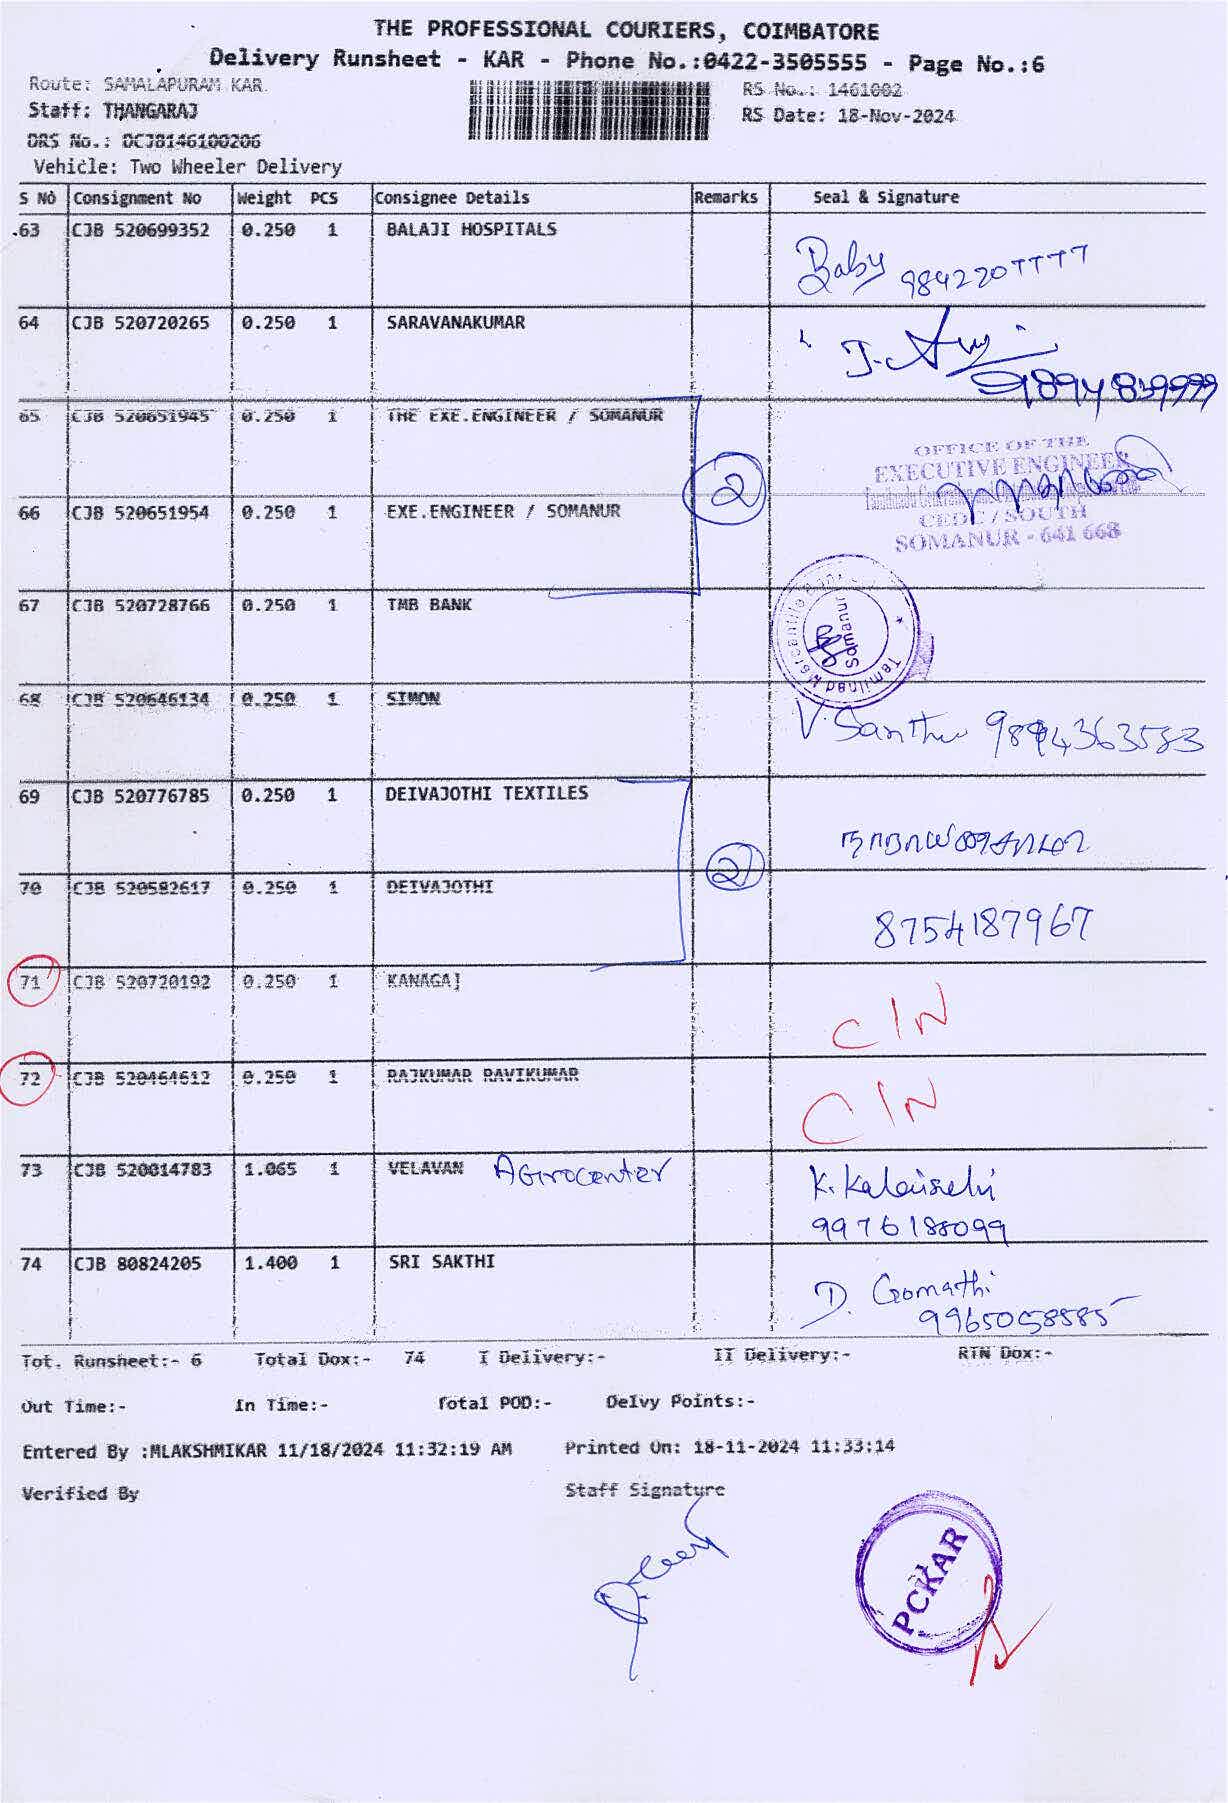 THE PROFESSIONAL COURIERS, COIMBATORE
Delivery Runsheet - KAR - Phone No.:0422-3505555 - Page No.:6
Route: SAMALAPURAM KAR. RS No.: 1461002
Staff: THANGARAJ RS Date: 18-Nov-2024
DRS No.: DCJB146100206
Vehicle: Two Wheeler Delivery
S NO Consignment No Weight PCS Consignee Details Remarks Seal & Signature
63 CJB 520699352 0.250 1 BALAJI HOSPITALS
Baby 9842207777
64 CJB 520720265 0.250 1 SARAVANAKUMAR
9894839999
65 CJB 520651945 0.250 1 THE EXE.ENGINEER / SOMANUR
OFFICE OF THE
EXECUTIVE ENGINEER
2
66 CJB 520651954 0.250 1 EXE.ENGINEER / SOMANUR
CEDC / SOUTH
SOMANUR - 641 668
67 CJB 520728766 0.250 1 TMB BANK
Tamilnad Mercantile Bank
Somanur
68 CJB 520646134 0.250 1 SIMON
V. Santhu 9894363583
69 CJB 520776785 0.250 1 DEIVAJOTHI TEXTILES
2
70 CJB 520582617 0.250 1 DEIVAJOTHI
8754187967
71 CJB 520720192 0.250 1 KANAGAJ
C/N
72 CJB 520464612 0.250 1 RAJKUMAR RAVIKUMAR
C/N
73 CJB 520014783 1.065 1 VELAVAN Agrocenter K. Kalaiselvi
9976188099
74 CJB 80824205 1.400 1 SRI SAKTHI
D. Gomathi
9965058585
Tot. Runsheet:- 6 Total Dox:- 74 I Delivery:- II Delivery:- RTN Dox:-
Out Time:- In Time:- Total POD:- Delvy Points:-
Entered By :MLAKSHMIKAR 11/18/2024 11:32:19 AM Printed On: 18-11-2024 11:33:14
Verified By Staff Signature
PCKAR